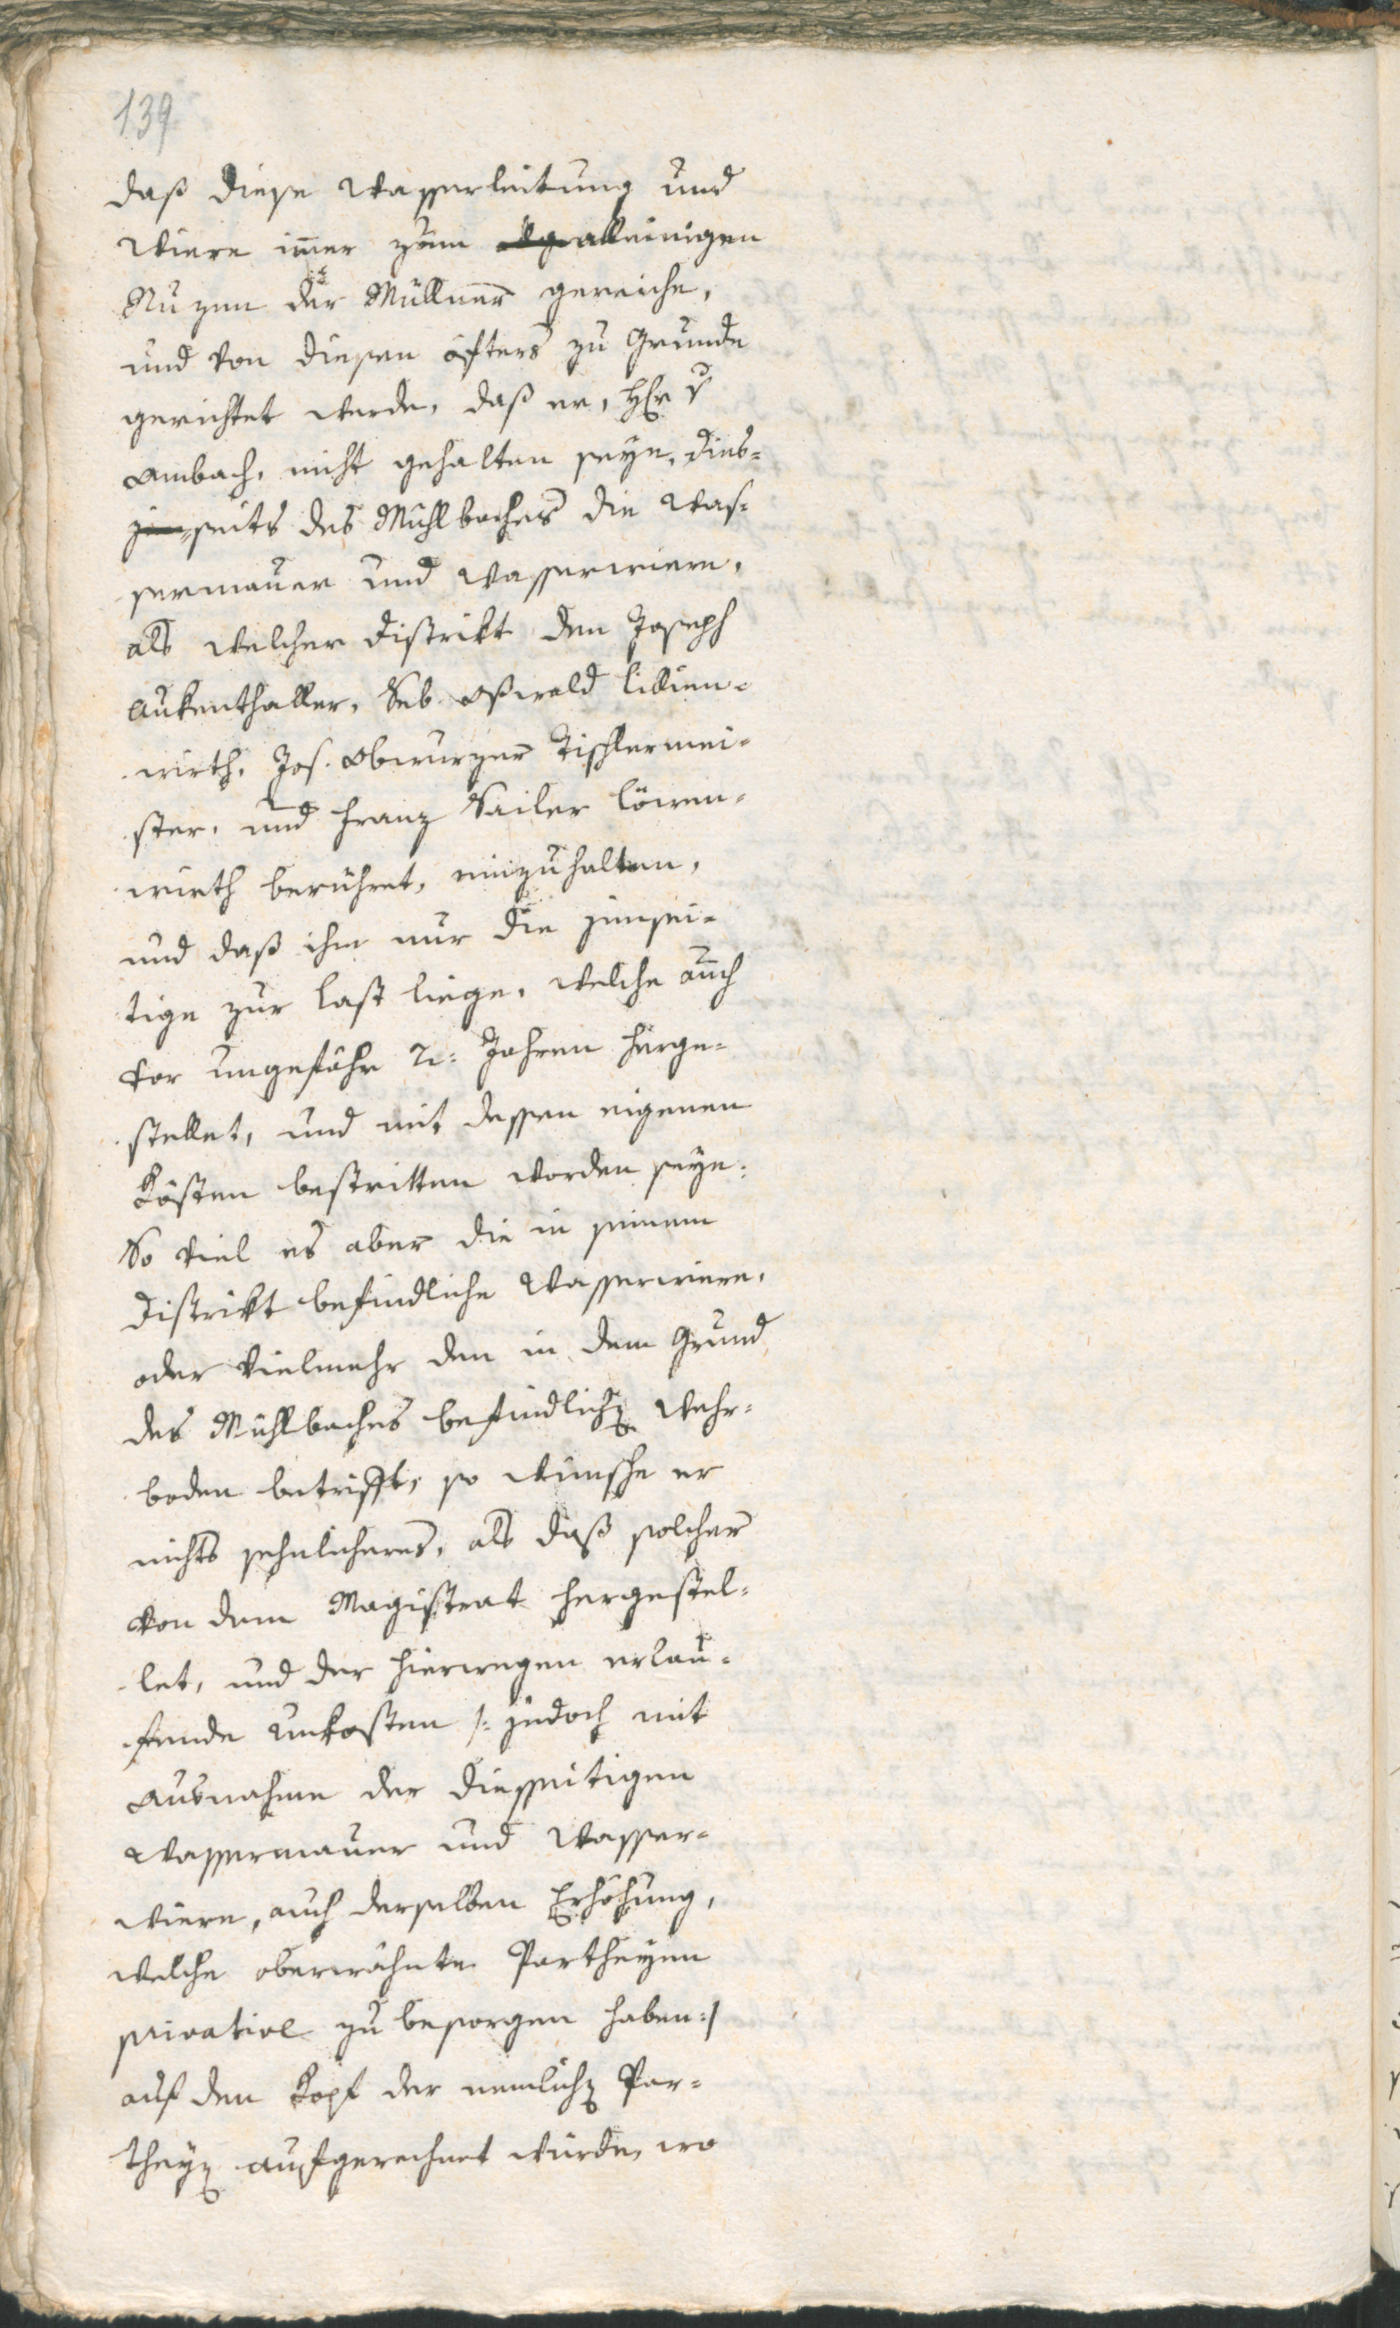 139
daß diese Wasserleitung und
Wiere imer zum alleinigen
Nuzen der Müllner gereiche,
und von diesen öfters zu Grunde
gerichtet werde, daß er, Hr v
Ambach, nicht gehalten seye, dies-
seits des Mühlbaches die Was-
sermauer und Wasserwiere,
als welcher Distrikt den Joseph
Aukenthaller, Seb. Oßwald lilien-
wirth, Jos. Obwurzer Tischlermei-
ster, und Franz Sailer löwen-
wirth berühret, einzuhalten,
und daß ihm nur die jensei-
tige zur last liege, welche auch
vor ungefähr 2: Jahren herge-
stellet, und mit dessen eigenen
Kösten bestritten worden seye:
So viel es aber die in seinem
Distrikt befindliche Wasserwiere,
oder vielmehr den in dem Grund
des Mühlbaches befindlichen Wehr-
boden betrifft, so wünsche er
nichts sehnlicheres, als daß solcher
von dem Magistrat hergestel-
let, und der hierwegen erlau-
fende Unkosten /: jedoch mit
Ausnahme der diesseitigen
Wassermauer und Wasser-
wiere, auch derselben Erhöhung,
welche oberwähnte Partheyen
privative zu besorgen haben :/
auf den Kopf der nemlichen Par-
theyen aufgerechnet würde, wo